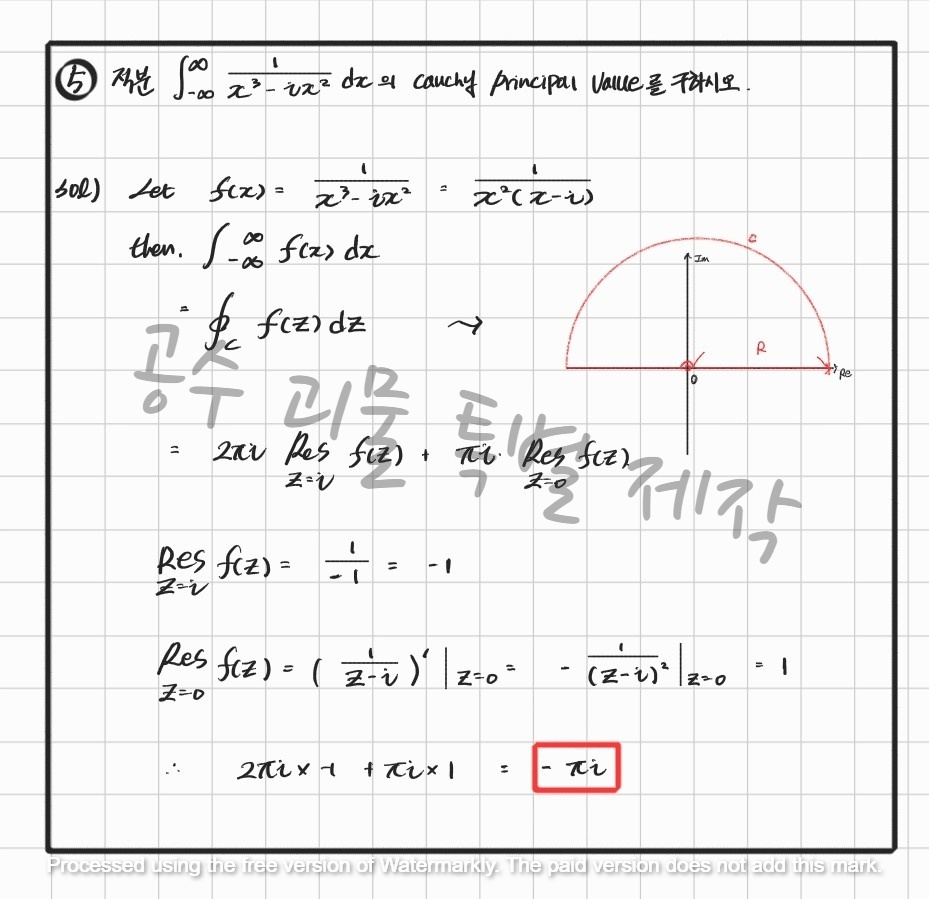 ⑤ 적분 ∫_{-∞}^{∞} 1/(x³ - ix²) dx 의 cauchy principal value를 구하시오.
sol) Let f(x) = 1/(x³ - ix²) = 1/(x²(x-i))
then. ∫_{-∞}^{∞} f(x) dx
c
Im
= ∮_C f(z) dz →
R
0
Re
공수 괴물 특별 제작
= 2πi Res_{z=i} f(z) + πi· Res_{z=0} f(z)
Res_{z=i} f(z) = 1/-1 = -1
Res_{z=0} f(z) = (1/(z-i))' |_{z=0} = - 1/(z-i)² |_{z=0} = 1
∴ 2πi × -1 + πi × 1 = - πi
Processed using the free version of Watermarkly. The paid version does not add this mark.